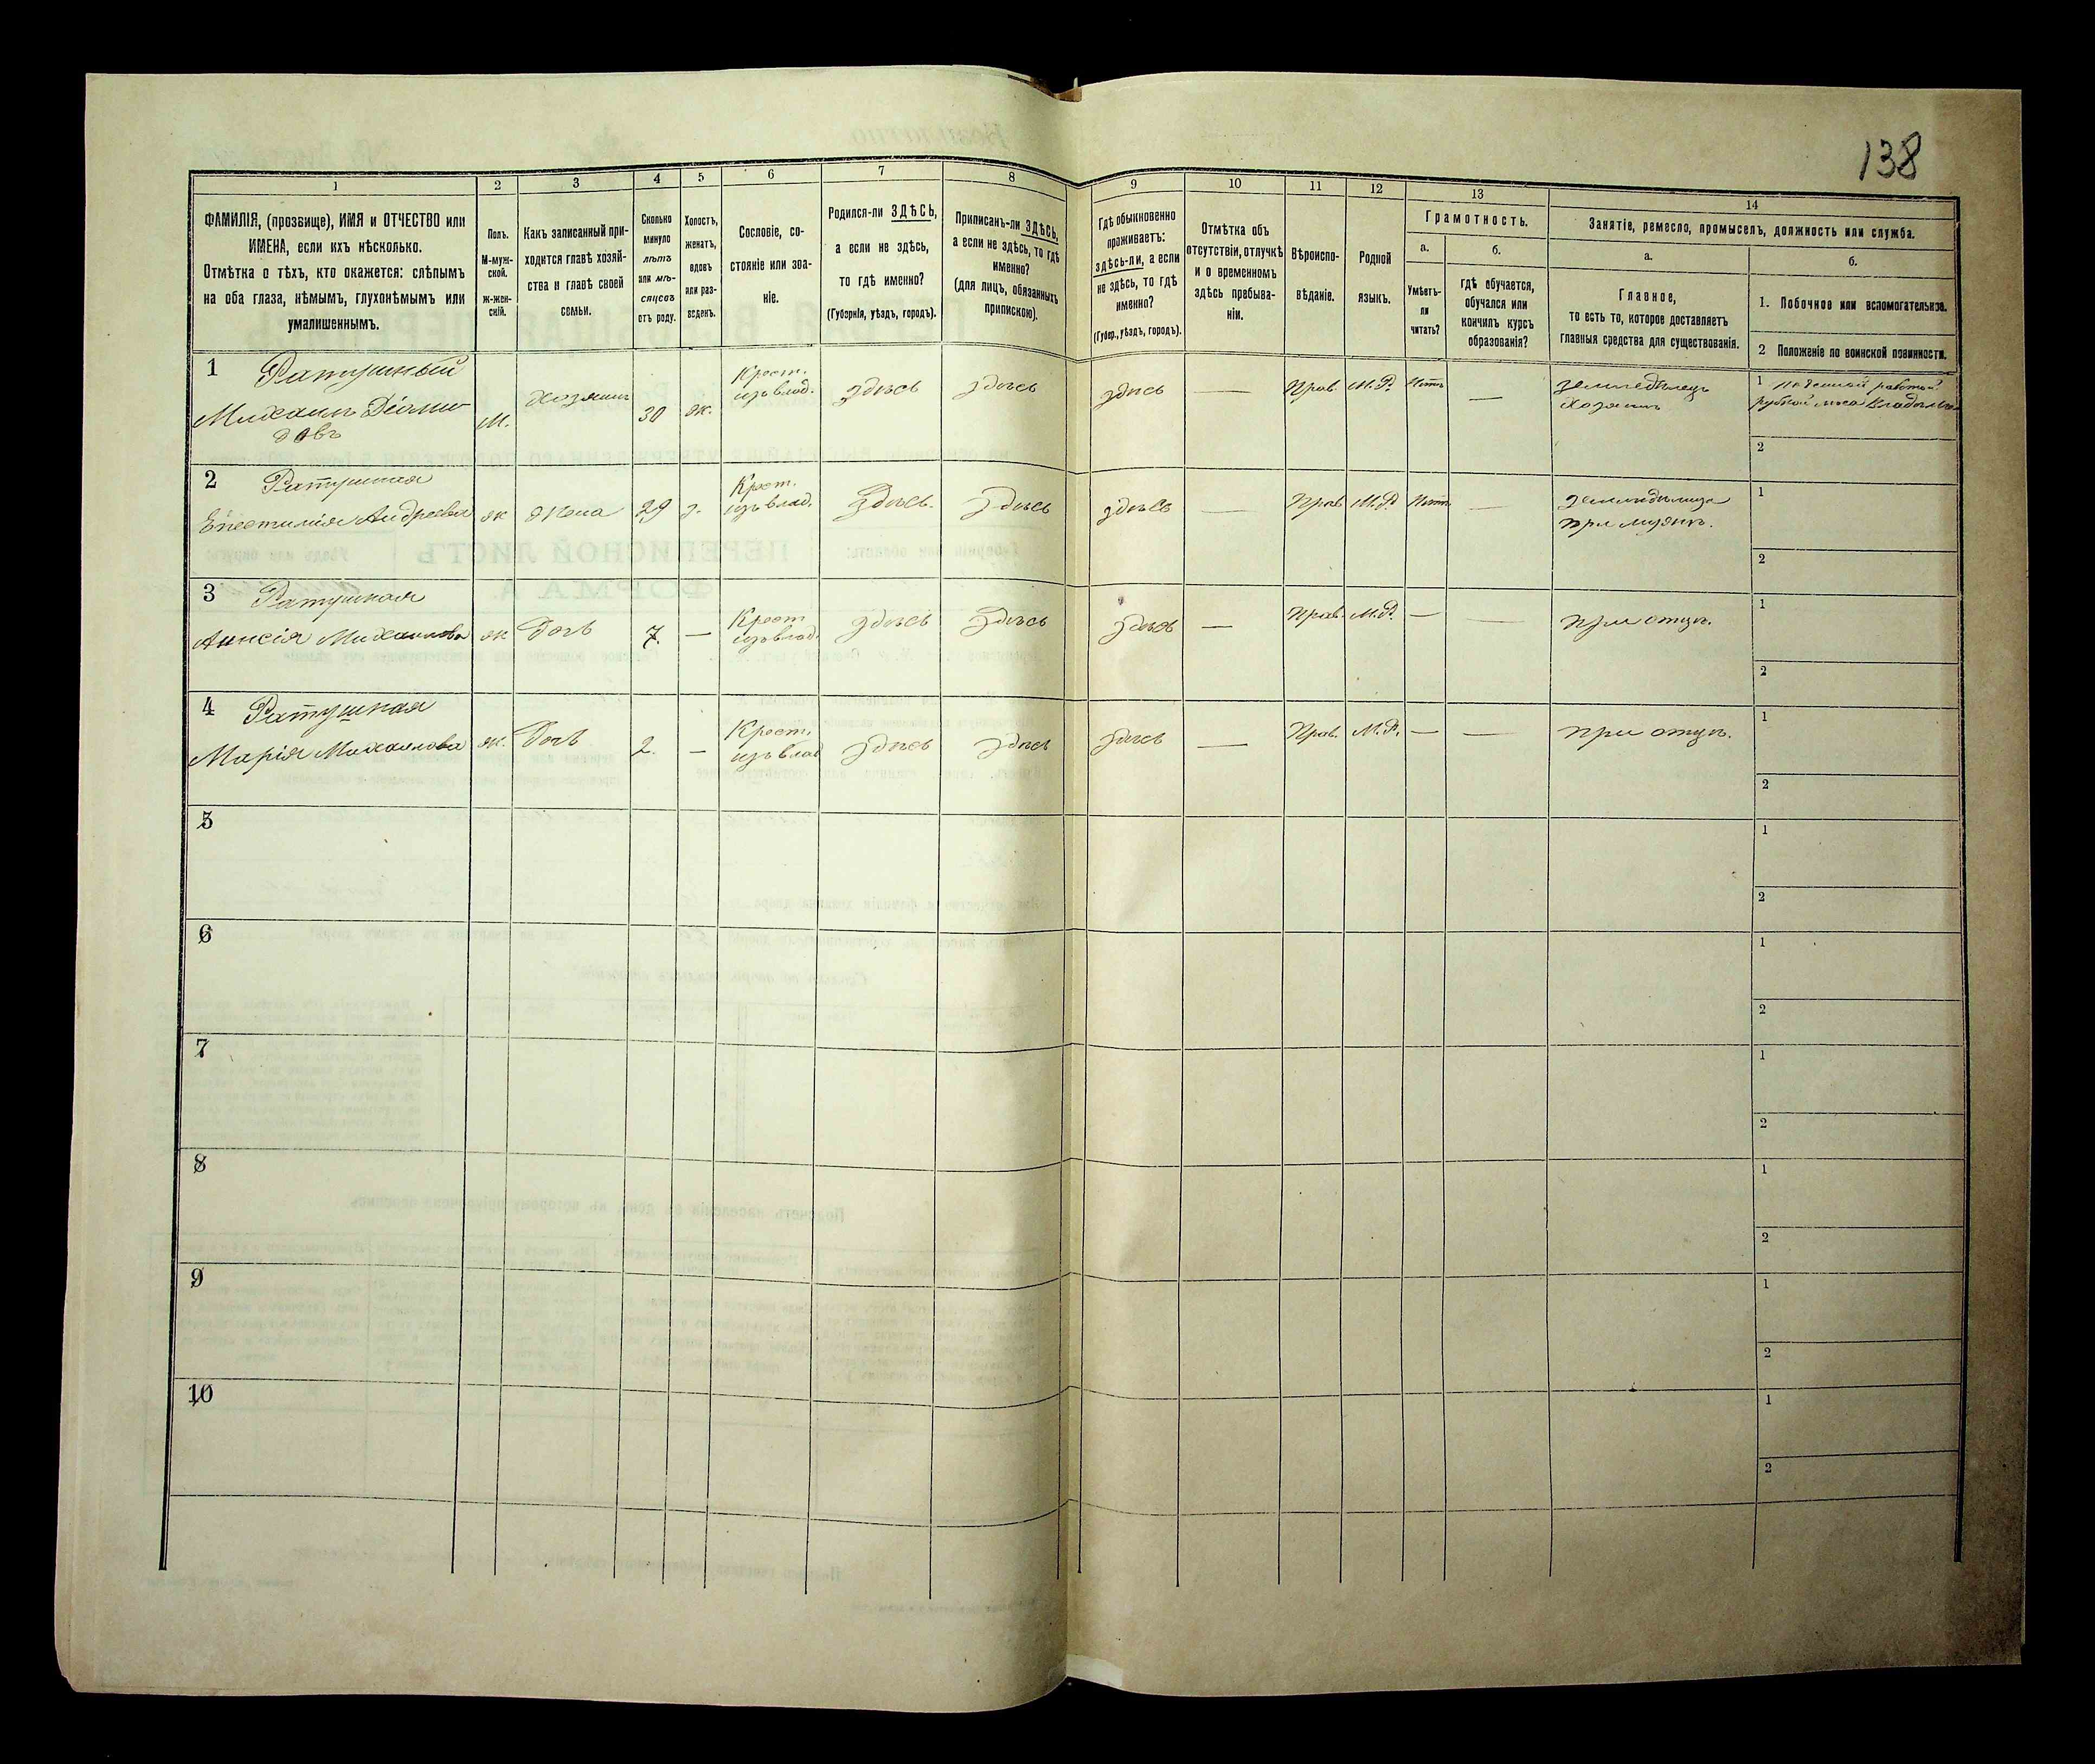 138
1 2 3 4 5 6 7 8 9 10 11 12 13 14
ФАМИЛІЯ, (прозвище), ИМЯ и ОТЧЕСТВО или
ИМЕНА, если ихъ нѣсколько.
Отмѣтка о тѣхъ, кто окажется: слѣпымъ
на оба глаза, нѣмымъ, глухонѣмымъ или
умалишеннымъ.
Полъ.
М-муж-
ской.
Ж-жен-
скій.
Какъ записанный при-
ходится главѣ хозяй-
ства и главѣ своей
семьи.
Сколько
минуло
лѣтъ
или мѣ-
сяцевъ
отъ роду.
Холостъ,
женатъ,
вдовъ
или раз-
веденъ.
Сословіе, со-
стояніе или зва-
ніе.
Родился-ли ЗДѢСЬ,
а если не здѣсь,
то гдѣ именно?
(Губернія, уѣздъ, городъ).
Приписанъ-ли ЗДѢСЬ,
а если не здѣсь, то гдѣ
именно?
(для лицъ, обязанныхъ
припискою).
Гдѣ обыкновенно
проживаетъ:
ЗДѢСЬ-ЛИ, а если
не здѣсь, то гдѣ
именно?
(Губер., уѣздъ, городъ).
Отмѣтка объ
отсутствіи, отлучкѣ
и о временномъ
здѣсь пребыва-
ніи.
Вѣроиспо-
вѣданіе.
Родной
языкъ.
Грамотность.
а.
Умѣетъ-
ли
читать?
б.
гдѣ обучается,
обучался или
кончилъ курсъ
образованія?
Занятіе, ремесло, промыселъ, должность или служба.
а.
Главное,
то есть то, которое доставляетъ
главныя средства для существованія.
б.
1. Побочное или вспомогательное.
2 Положеніе по воинской повинности.
1 Ратушный
Михаилъ Діоми
довъ
М. Хозяинъ 30 ж.
Крест.
изъ влад.
здѣсь здѣсь здѣсь — Прав. М.Р. Нѣтъ —
земледѣлецъ
хозяинъ
1
рубкой лѣса
2
2 Ратушная
Андреева ж жена 29 з.
Крест.
изъ влад.
Здѣсь. Здѣсь здѣсь — Прав М.Р. Нѣтъ —
при мужѣ.
1
2
3 Ратушная
Анисія Михаилова ж Дочь 7. —
Крест
изъ влад.
здѣсь Здѣсь здѣсь — Прав. М.Р. — — при отцѣ.
1
2
4 Ратушная
Марія Михаилова ж. Дочь 2. —
Крест.
изъ влад
здѣсь здѣсь здѣсь — Прав. М.Р. — — при отцѣ.
1
2
5
1
2
6
1
2
7
1
2
8
1
2
9
1
2
10
1
2